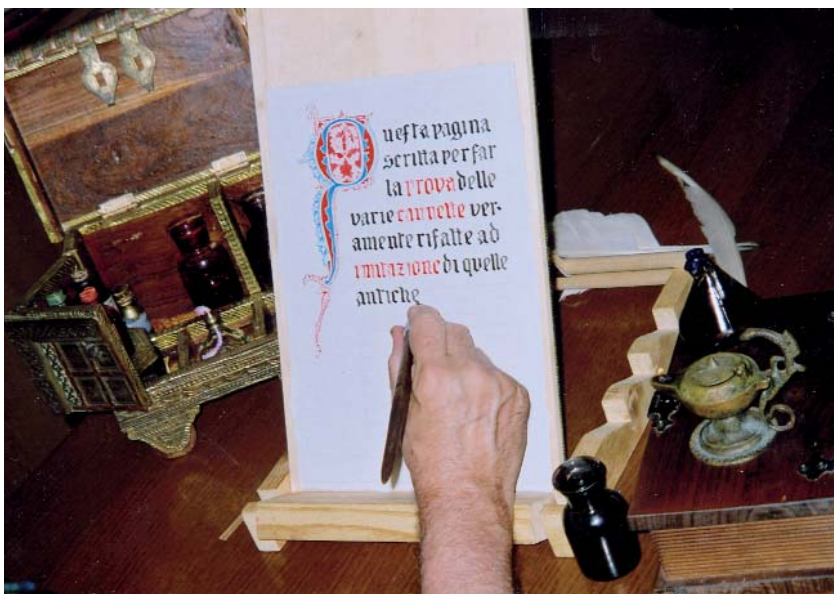 Questa pagina
scritta per far
la prova delle
varie cannette ver-
amente rifatte ad
imitazione di quelle
antiche